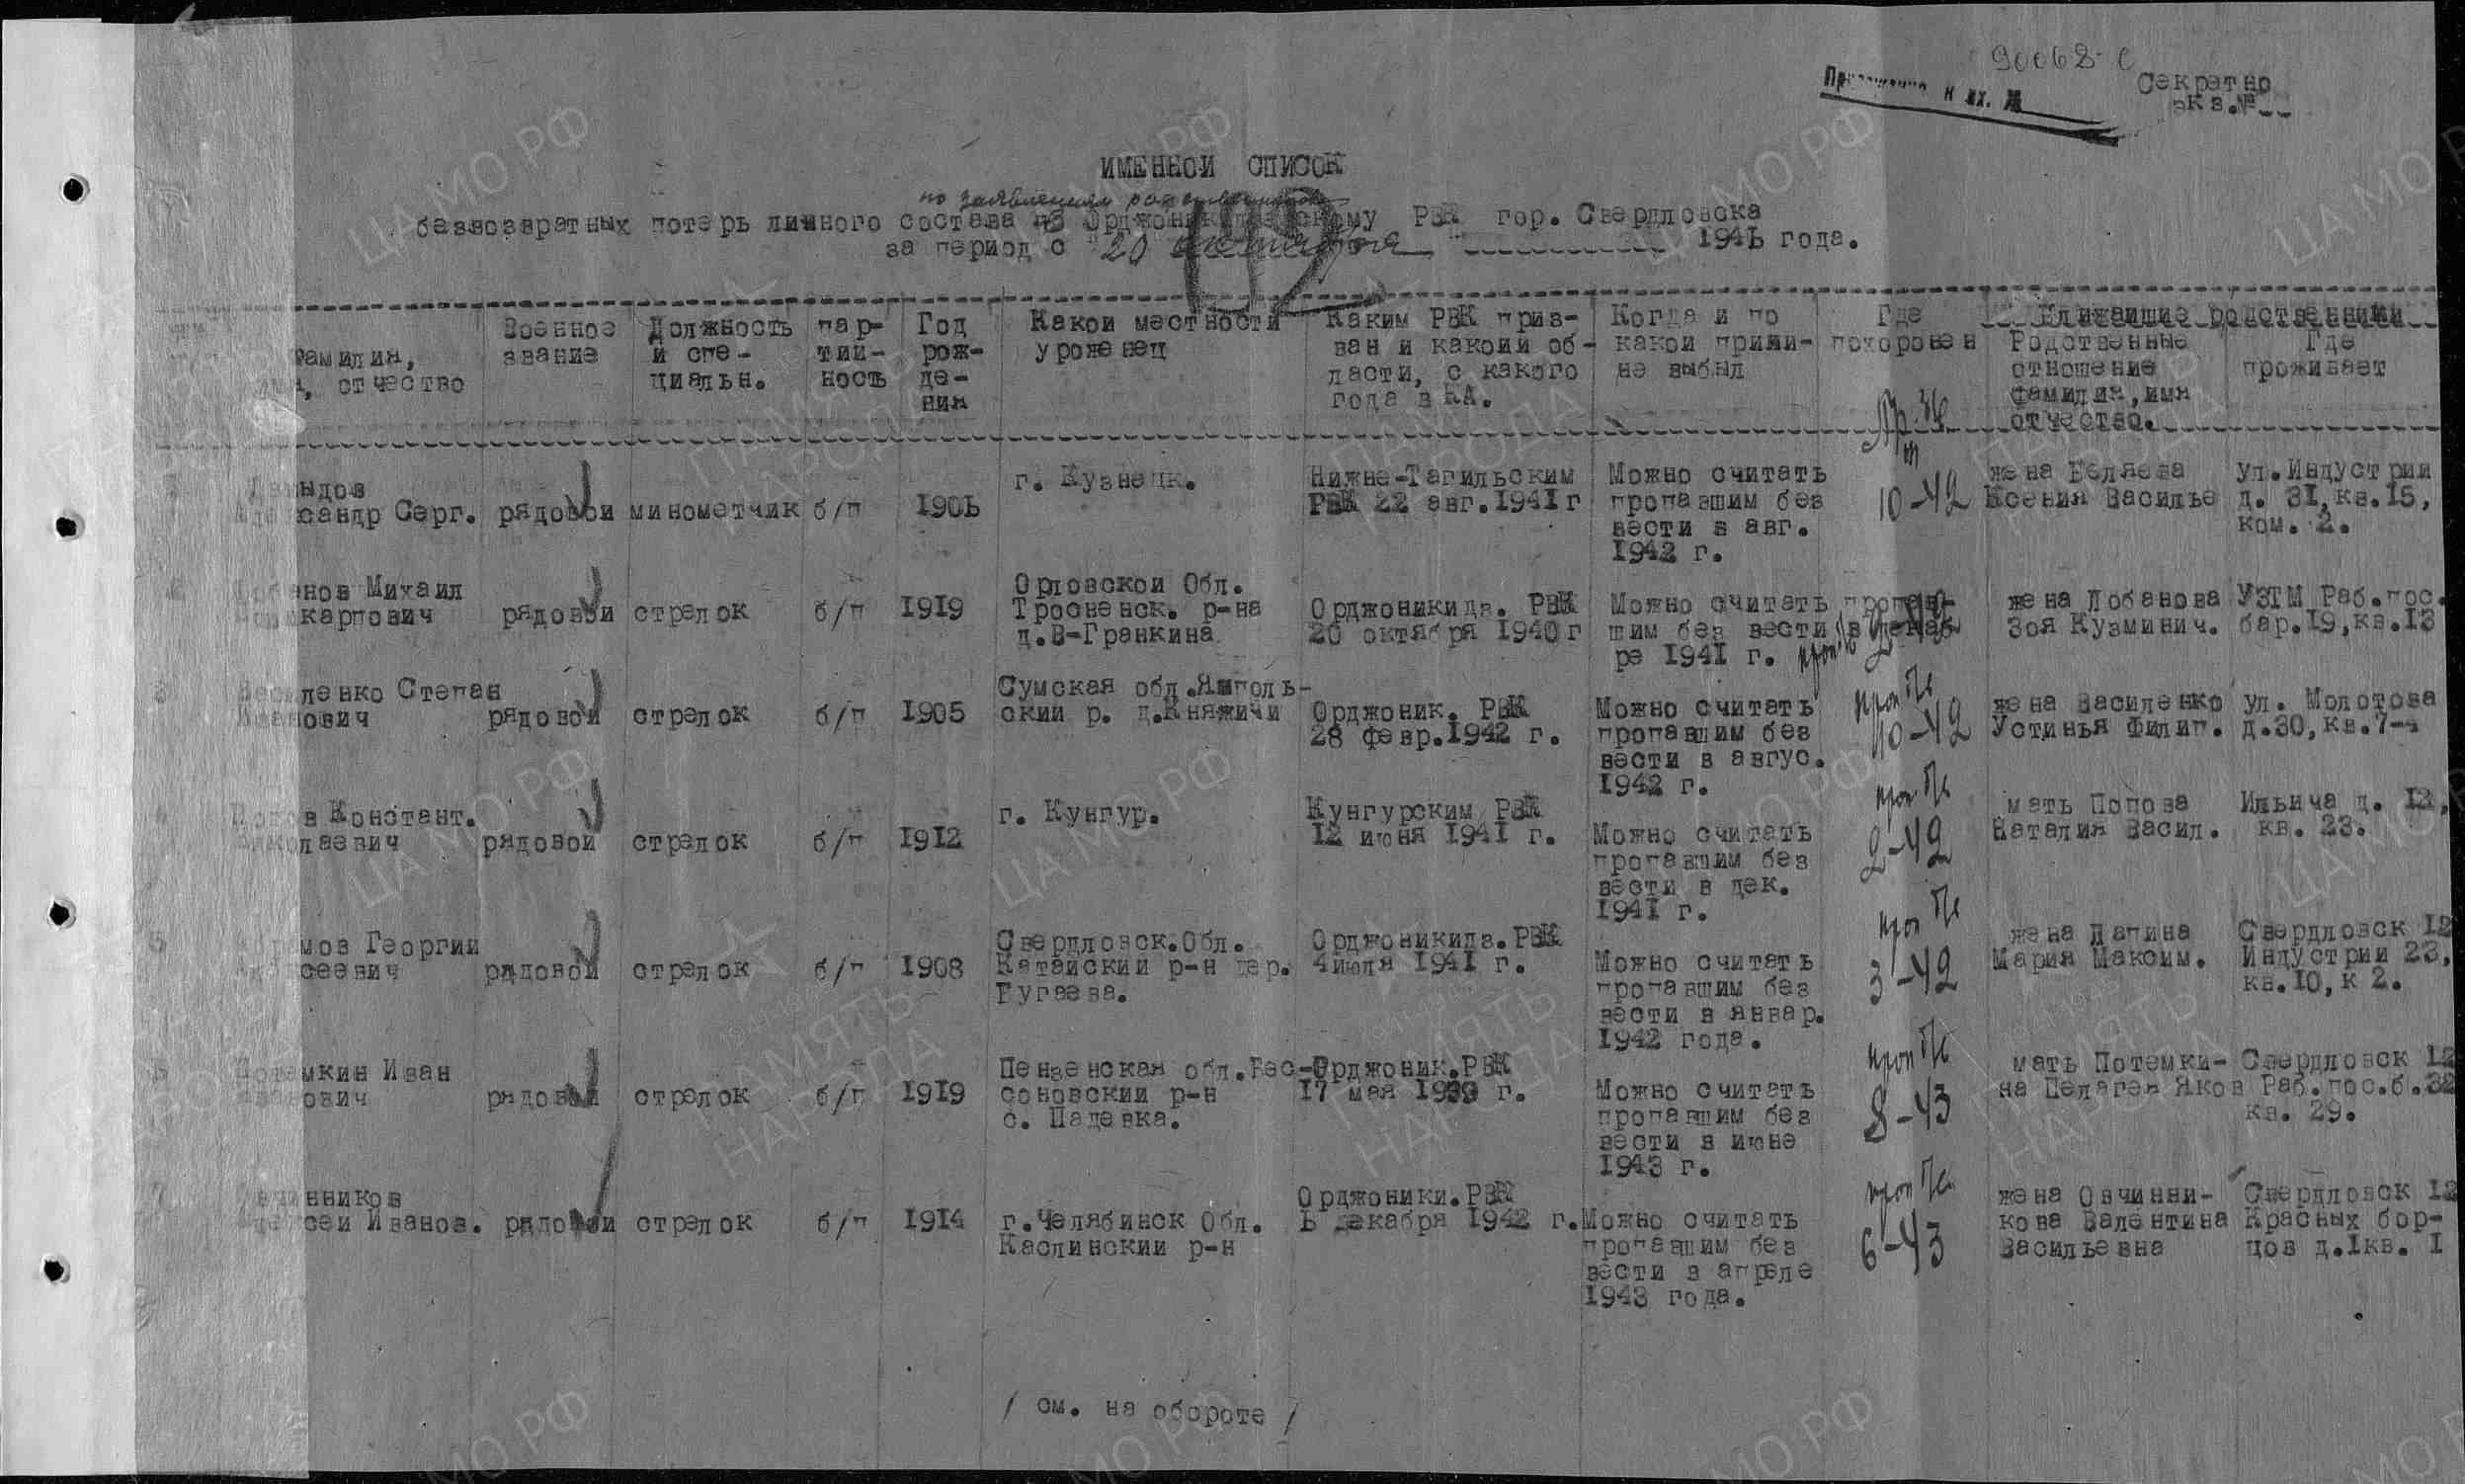 90068-с
Секретно
экз.№
к вх. №
ИМЕННОЙ СПИСОК
по заявлениям родственников
безвозвратных потерь личного состава по Орджоникидзевскому РВК гор. Свердловска
за период с "20 октября 194Ь года.
Фамилия, отчество
Военное звание
Должность и спе- циальн.
пар- тий- ность
Год рож- де- ния
Какой местности уроженец
Каким РВК приз- ван и какой об- ласти, с какого года в КА.
Когда и по какой причи- не выбыл
Где похоронен
Ближайшие родственники
Родственные отношение фамилия, имя отчество.
Где проживает
Серг. рядовой минометчик б/п 190Ь
г. Кузнецк.
Нижне-Тагильским
РВК 22 авг.1941г
Можно считать
пропавшим без
вести в авг.
1942 г.
10-42
жена Беляева
Ксения Василье
ул.Индустрии
д. 31,кв.15,
ком. 2.
Михаил
карпович рядовой стрелок б/п 1919
Орловской Обл.
Тросненск. р-на
д.В-Гранкина
Орджоникидз. РВК
20 октября 1940г
Можно считать пропав-
шим без вести в декаб-
ре 1941 г.
жена Лобанова
Зоя Кузминич.
УЗТМ Раб.пос.
бар.19,кв.13
3 Василенко Степан
Иванович рядовой стрелок б/п 1905
Сумская обл.Ямполь-
ский р. д.Княжичи
Орджоник. РВК
28 февр.1942 г.
Можно считать
пропавшим без
вести в авгус.
1942 г.
проп б/в
10-42
жена Василенко
Устинья Филип.
ул. Молотова
д.30,кв.7-4
Попов Констант.
Николаевич рядовой стрелок б/п 1912
г. Кунгур.
Кунгурским РВК
12 июня 1941 г.
Можно считать
пропавшим без
вести в дек.
1941 г.
проп б/в
2-42
мать Попова
Наталия Васил.
Ильича д. 12,
кв. 23.
5 Георгий
сеевич рядовой стрелок б/п 1908
Свердловск.Обл.
Катайский р-н дер.
Гугаева.
Орджоникидз.РВК
4июля 1941 г.
Можно считать
пропавшим без
вести в январ.
1942 года.
проп б/в
3-42
жена Лапина
Мария Максим.
Свердловск 12
Индустрии 23,
кв.10,к 2.
Потемкин Иван
Иванович рядовой стрелок б/п 1919
Пензенская обл.Бес-
соновский р-н
с. Падевка.
Орджоник.РВК
17 мая 1939 г.
Можно считать
пропавшим без
вести в июне
1943 г.
проп б/в
8-43
мать Потемки-
на Пелагея Яков
Свердловск 12
Раб.пос.б.32
кв. 29.
7 Овчинников
Алексей Иванов. рядовой стрелок б/п 1914
г.Челябинск Обл.
Каслинский р-н
Орджоники.РВК
Ь декабря 1942 г.
Можно считать
пропавшим без
вести в апреле
1943 года.
проп б/в
6-43
жена Овчинни-
кова Валентина
Васильевна
Свердловск 12
Красных бор-
цов д.1кв. 1
/ см. на обороте /